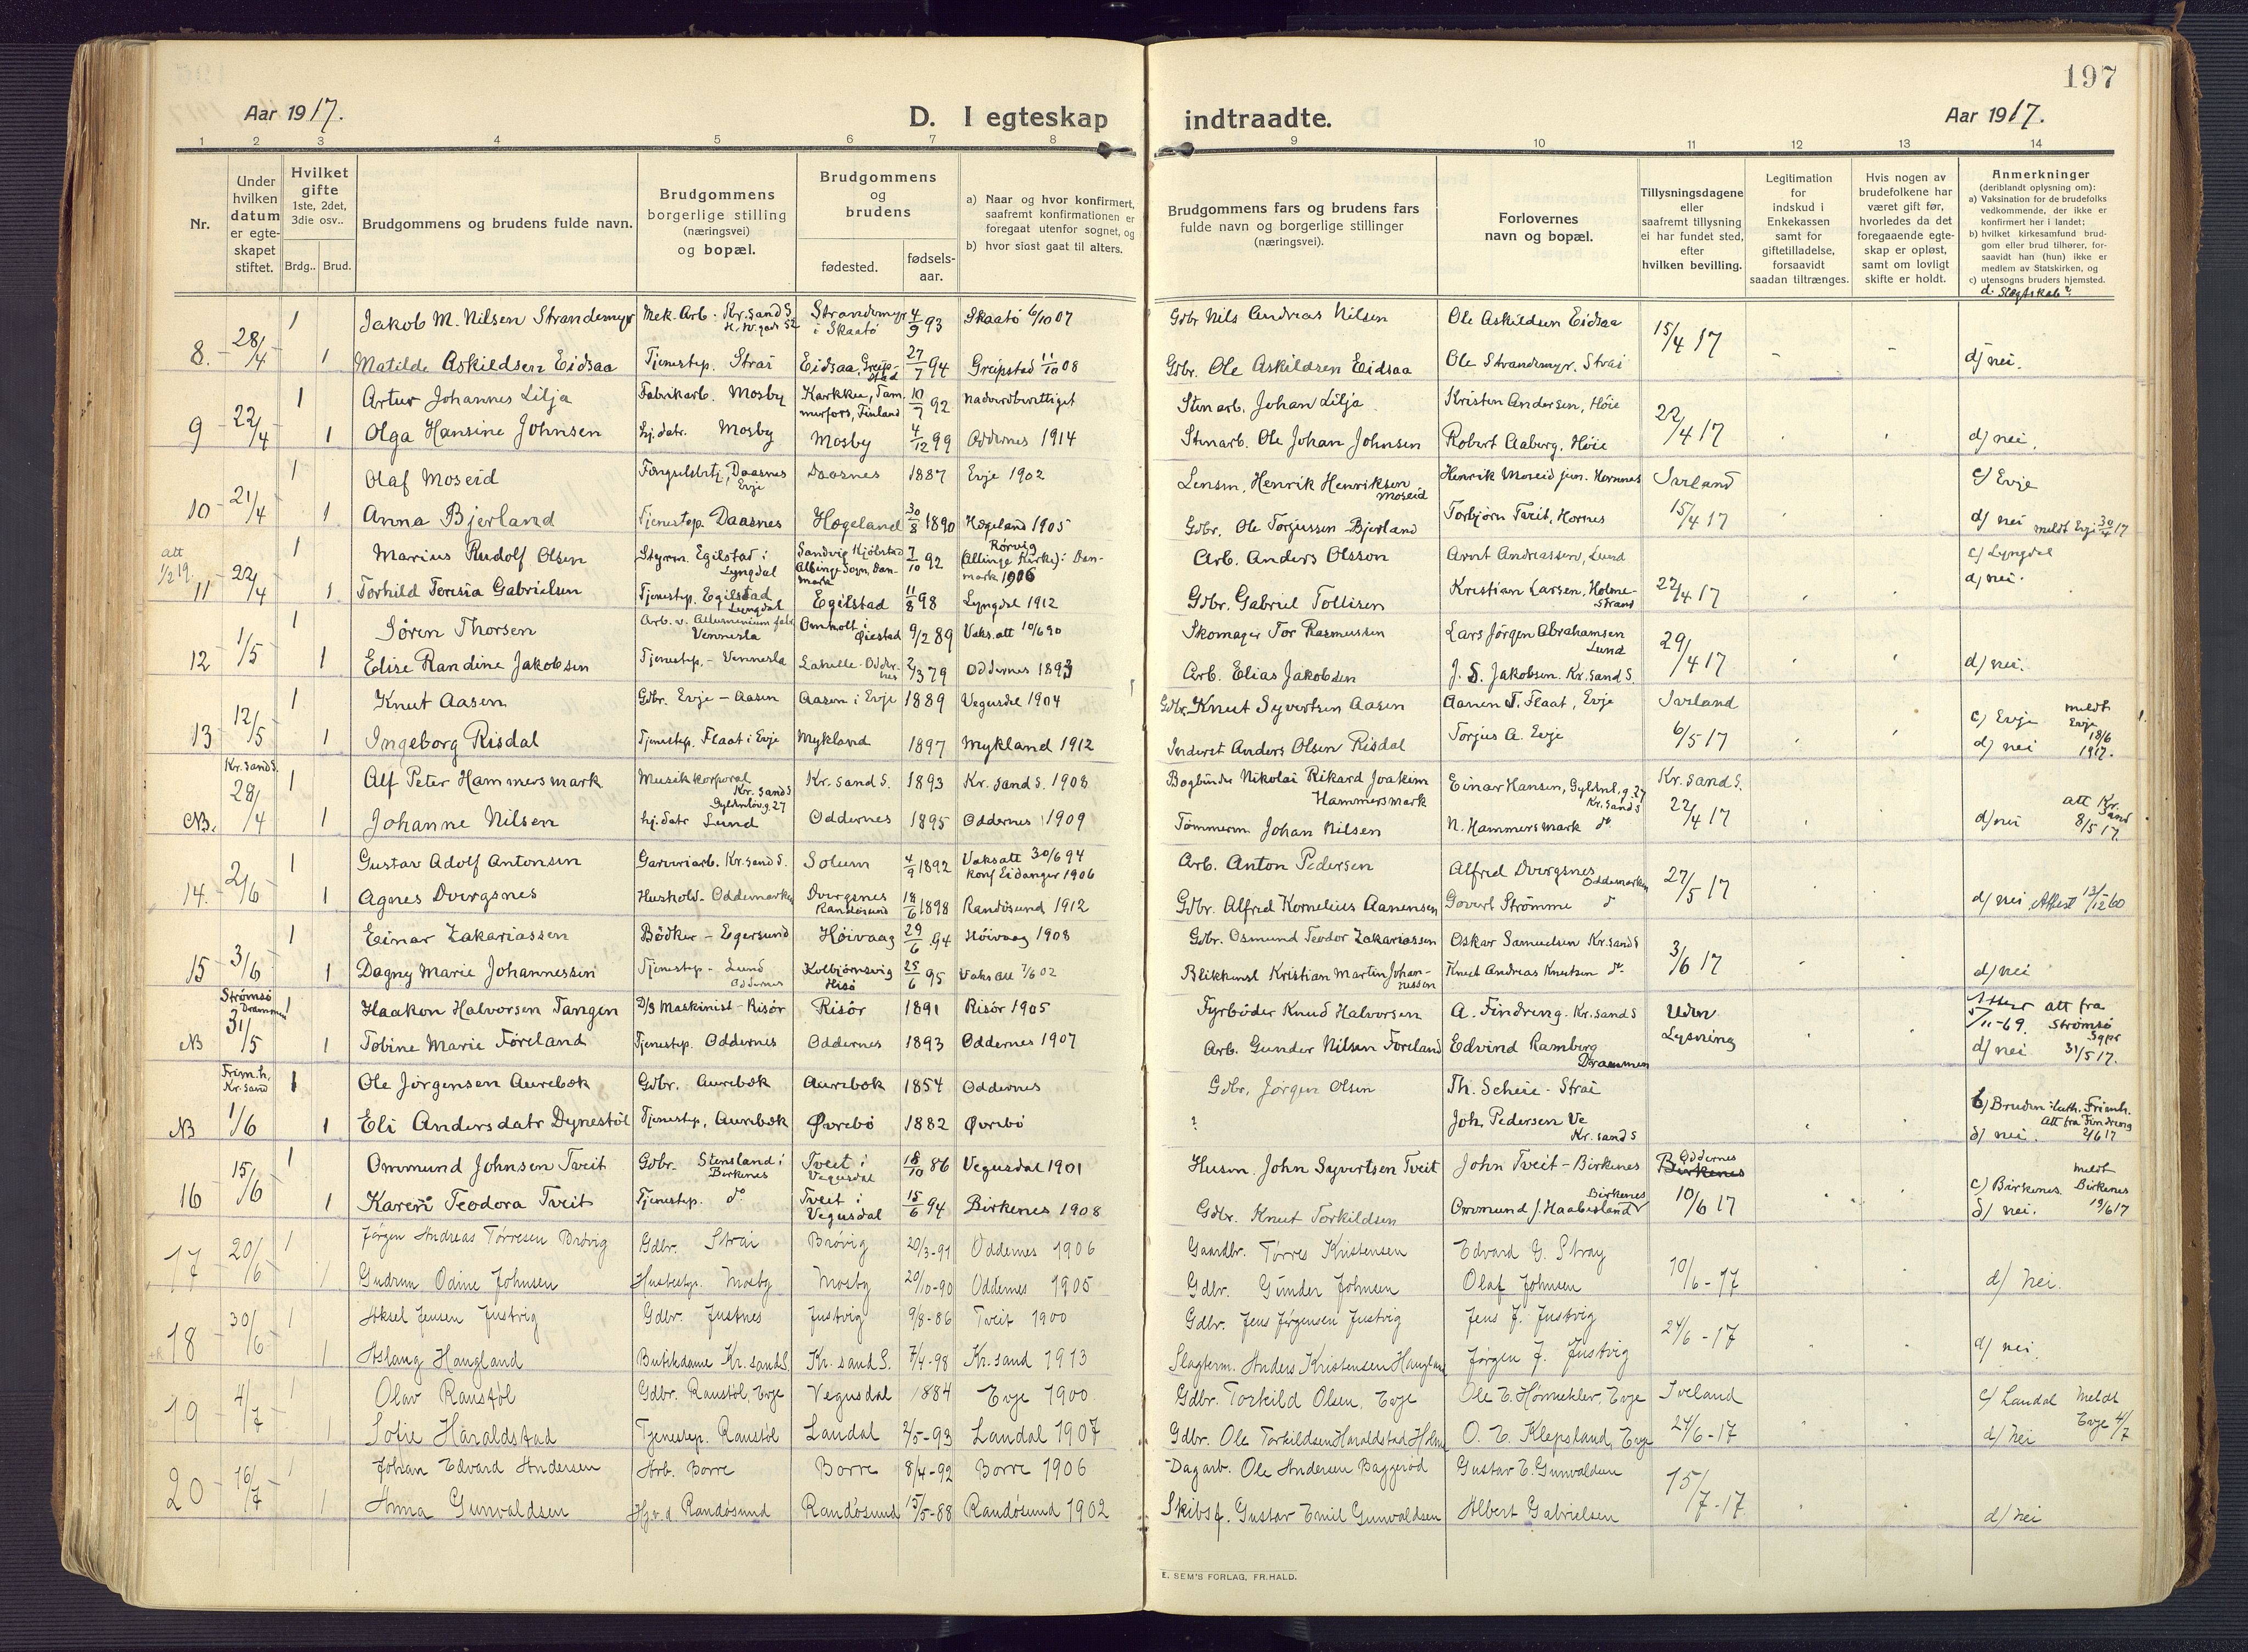 197
Aar 1917. D. I egteskap indtraadte. Aar 1917.
1 2 3 4 5 6 7 8 9 10 11 12 13 14
Nr.
Under hvilken datum er egteskapet stiftet.
Hvilket gifte 1ste, 2det, 3die osv..
Brdg.. Brud.
Brudgommens og brudens fulde navn.
Brudgommens borgerlige stilling (næringsvei) og bopæl.
Brudgommens og brudens
fødested.
fødsels-aar.
a) Naar og hvor konfirmert, saafremt konfirmationen er foregaat utenfor sognet, og
b) hvor sidst gaat til alters.
Brudgommens fars og brudens fars fulde navn og borgerlige stillinger (næringsvei).
Forlovernes navn og bopæl.
Tillysningsdagene eller saafremt tillysning ei har fundet sted, efter hvilken bevilling.
Legitimation for indskud i Enkekassen samt for giftetilladelse, forsaavidt saadan tiltrænges.
Hvis nogen av brudefolkene har været gift før, hvorledes da det foregaaende egteskap er opløst, samt om lovligt skifte er holdt.
Anmerkninger (deriblandt oplysning om):
a) Vaksination for de brudefolks vedkommende, der ikke er konfirmert her i landet;
b) hvilket kirkesamfund brudgom eller brud tilhører, forsaavidt han (hun) ikke er medlem av Statskirken, og
c) utensogns bruders hjemsted.
d. Slægtskab?
1 Jakob M. Nilsen Strandemyr Mek. Arb. Kr.sand S Strandemyr i Skaatö 4/9 93 Skaatö 6/10 07 Gdbr Nils Andreas Nilsen Ole Askildsen Eidsaa 15/4 17
8. 28/4 1 Matilde Askildsen Eidsaa Tjenestep. Strai Eidsaa, Greipstad 27/7 94 Greipstad 11/10 08 Gdbr. Ole Askildsen Eidsaa Ole Strandemyr. Strai d/ nei.
1 Artur Johannes Lilja Fabrikarb. Mosby Karkku, Tammerfors, Finland 10/7 92 Nadverdberettiget Stenarb. Johan Lilja Kristen Andersen, Höie 22/4 17
9 22/4 1 Olga Hansine Johnsen hj. datr. Mosby Mosby 4/12 99 Oddernes 1914 Stenarb. Ole Johan Johnsen Robert Aaberg, Höie d/ nei.
1 Olaf Moseid Daasnes Evje Daasnes 1887 Evje 1902 Lensm. Henrik Henriksen Moseid Henrik Moseid jun. Hornnes Iveland c/ Evje
10 21/4 1 Anna Bjerland Tjenestep. Daasnes Hægeland 30/8 1890 Hægeland 1905 Gdbr. Ole Torjussen Bjerland Torbjörn Tveit, Hornes 15/4 17 d/ nei meldt Evje 30/4 17
att 1/2 19. 1 Marius Rudolf Olsen Styrm. Egilstad i Lyngdal Sandvig Hjöbstad Albinge Sogn, Danmark 7/10 92 Rörvig (Allinge Kirke): Danmark 1906 Arb. Anders Olsson Arnt Andreassen, Lund c/ Lyngdal
11 22/4 1 Torhild Teresia Gabrielsen Tjenestep. Egilstad Lyngdal Egilstad 11/8 98 Lyngdal 1912 Gdbr. Gabriel Tollisen Kristian Larsen, Holmestrand 22/4 17 d/ nei.
1 Sören Thorsen Arb. v. Alluminium fabr Vennesla Omholt i Öiestad 9/2 89 Vaks. att 10/6 90 Skomager Tor Rasmussen Lars Jörgen Abrahamsen Lund 29/4 17
12 1/5 1 Elise Randine Jakobsen Tjenestep. - Vennesla Lahille - Oddernes 2/3 79 Oddernes 1893 Arb. Elias Jakobsen J. S. Jakobsen. Kr.sand S. d/ nei.
1 Knut Aasen Gdbr. Evje - Aasen Aasen i Evje 1889 Vegusdal 1904 Gdbr. Knut Syvertsen Aasen Aanen T. Flaat, Evje Iveland c/ Evje meldt Evje 18/6 1917.
13 12/5 1 Ingeborg Risdal Tjenestep. Flaat i Evje Mykland 1897 Mykland 1912 Inderst Anders Olsen Risdal Torjus A. Evje 6/5 17 d/ nei
Kr.sand S. 1 Alf Peter Hammersmark Musikkorporal Kr. sand S Gyldenløv. g. 27 Kr. sand S. 1893 Kr. sand S. 1908 Bogbinder Nikolai Rikard Joakim Hammersmark Einar Hansen, Gyldenl. g. 27 Kr. sand S Kr. sand S.
NB. 28/4 1 Johanne Nilsen hj. datr Lund Oddernes 1895 Oddernes 1909 Tömmerm. Johan Nilsen N. Hammersmark do 22/4 17 d/ nei att Kr. Sand 8/5 17.
1 Gustav Adolf Antonsen Garveriarb. Kr.sand S. Solum 4/9 1892 Vaksatt 30/6 94 Konf Eidanger 1906 Arb. Anton Pedersen Alfred Dvergsnes Oddemarken 27/5 17
14. 2/6 1 Agnes Dvergsnes Hushold. Oddemarken Dvergsnes Randösund 18/6 1898 Randösund 1912 Gdbr. Alfred Kornelius Aanensen Govert Strömme d/ nei Attest 13/12 60
1 Einar Zakariassen Bödker - Egersund Höivaag 29/6 94 Höivaag 1908 Gdbr. Osmund Teodor Zakariassen Oskar Samuelsen Kr.sand S 3/6 17
15 3/6 1 Dagny Marie Johannessen Tjenestep - Lund Oddernes Kolbjörnsvig Hisö 25/6 95 Vaks att 7/6 02 Blikkensl Kristian Martin Johannessen Knut Andreas Knutsen do. d/ nei
Strømsö Drammen 1 Haakon Halvorsen Tangen D/S Maskinist - Risör Risör 1891 Risör 1905 Fyrböder Knud Halvorsen A. Findreng. Kr.sand S Uden Lysning att fra Strömsö Sgpr 31/5 17.
NB 31/5 1 Tobine Marie Föreland Tjenestep. Oddernes Oddernes 1893 Oddernes 1907 Arb. Gunder Nilsen Foreland Edvind Ramberg Drammen d/ nei
Frim.h. Kr.sand 1 Ole Jörgensen Aurebæk Gdbr. Aurebæk Aurebæk 1854 Oddernes Gdbr, Jörgen Olsen Th. Scheie - Strai
NB 1/6 1 Eli Andersdatr Dynestöl Tjenestep, Aurebæk Øvrebö 1882 Øvrebö ? Joh. Pedersen Ve Kr. sand S b/ Bruden: luth. Frimh. Att fra Findreng 2/6 17 d/ nei.
1 Ommund Johnsen Tveit Gdbr. Stensland i Birkenes Tveit i Vegusdal 18/10 86 Vegusdal 1901 Husm. John Syvertsen Tveit John Tveit - Birkenes Oddernes Birkenes c/ Birkenes. meldt Birkenes 19/6 17
16 15/6 1 Karen Teodora Tveit Tjenestep. do Tveit i Vegusdal 15/6 94 Birkenes 1908 Gdbr. Knut Torkildsen Ommund J. Haabesland Birkenes 10/6 17 d/ nei.
1 Jørgen Andreas Tørresen Brøvig Gdbr. Strai Brøvig 20/3-91 Oddernes 1906 Gaardbr. Tørres Kristensen Edvard G. Stray 10/6-17
17 20/6 1 Gudrun Odine Johnsen Husbestyr. Mosby Mosby 20/10-90 Oddernes 1905 Gdbr. Gunder Johnsen Olaf Johnsen d/ nei.
1 Aksel Jensen Justvig Gdbr. Justnes Justvig 9/8-86 Tveit 1900 Gdbr. Jens Jørgensen Justvig Jens J. Justvig 24/6-17
18 30/6 1 Aslaug Haugland Butikdame Kr.sand S. Kr. sand S. 7/4-98 Kr.sand 1913 Slagterm. Anders Kristensen Haugland Jørgen J. Justvig d/ nei.
1 Olav Ranstøl Gdbr. Ranstøl, Evje Vegusdal 1884 Evje 1900 Gdbr. Torkild Olsen, Evje Ole E. Hornekler, Evje Iveland c/ Landal Meldt Evje 4/7
19 4/7 1 Sofie Haraldstad Tjenestep. Ranstøl Landal 2/5-93 Landal 1907 Gdbr. Ole Torkildsen Haraldstad O. E. Klepsland, Evje 24/6-17 d/ nei
1 Johan Edvard Andersen Arb. Borre Borre 8/4-92 Borre 1906 Dagarb. Ole Andersen Baggerød Gustav E. Gunvaldsen 15/7-17
20 16/7 1 Anna Gunvaldsen Hj.v.d. Randøsund Randøsund 15/5-88 Randøsund 1902 Skibsf. Gustav Emil Gunvaldsen Albert Gabrielsen d/ nei
E. SEM'S FORLAG, FR.HALD.